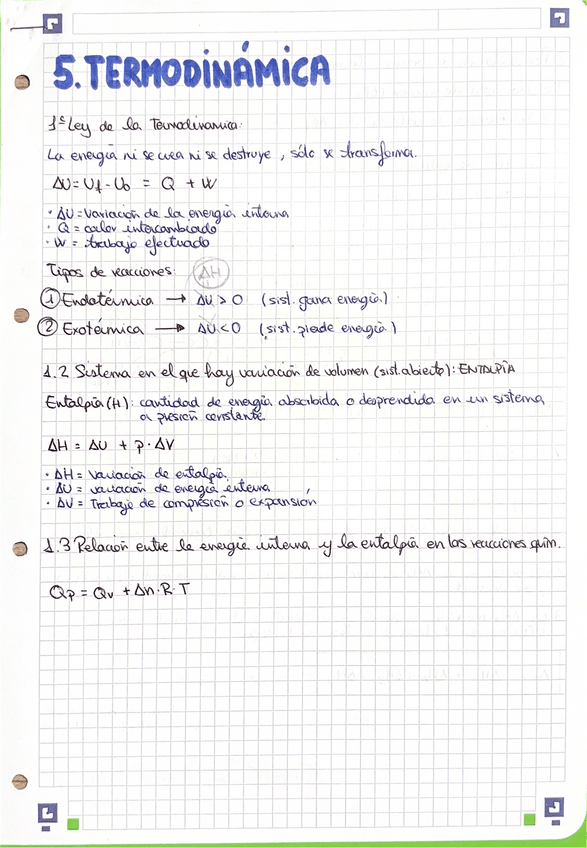 5. TERMODINÁMICA
1ª Ley de la Termodinamica:
La energía ni se crea ni se destruye, sólo se transforma.
ΔU = Uf - U0 = Q + W
· ΔU = Variación de la energía interna
· Q = calor intercambiado
· W = trabajo efectuado
Tipos de reacciones: ΔH
① Endotérmica → ΔU > 0 (sist. gana energía)
② Exotérmica → ΔU < 0 (sist. pierde energía)
1.2 Sistema en el que hay variación de volumen (sist. abierto): ENTALPÍA
Entalpía (H): cantidad de energía absorbida o desprendida en un sistema,
a presión constante.
ΔH = ΔU + p · ΔV
· ΔH = Variación de entalpía
· ΔU = variación de energía interna
· ΔV = Trabajo de compresión o expansión
1.3 Relación entre la energía interna y la entalpía en las reacciones quím.
Qp = Qv + Δn · R · T